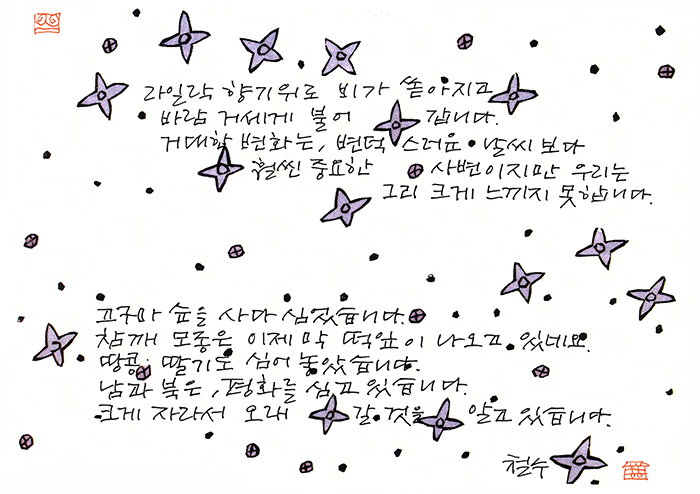 라일락 향기위로 비가 쏟아지고
바람 거세게 불어 갑니다.
거대한 변화는, 변덕 스러운 날씨 보다
훨씬 중요한 사변이지만 우리는
그리 크게 느끼지 못합니다.
고구마 순을 사다 심었습니다.
참깨 모종은 이제 막 떡잎이 나오고 있네요.
땅콩, 딸기도 심어 놓았습니다.
남과 북은, 평화를 심고 있습니다.
크게 자라서 오래 갈 것을 알고 있습니다.
철수